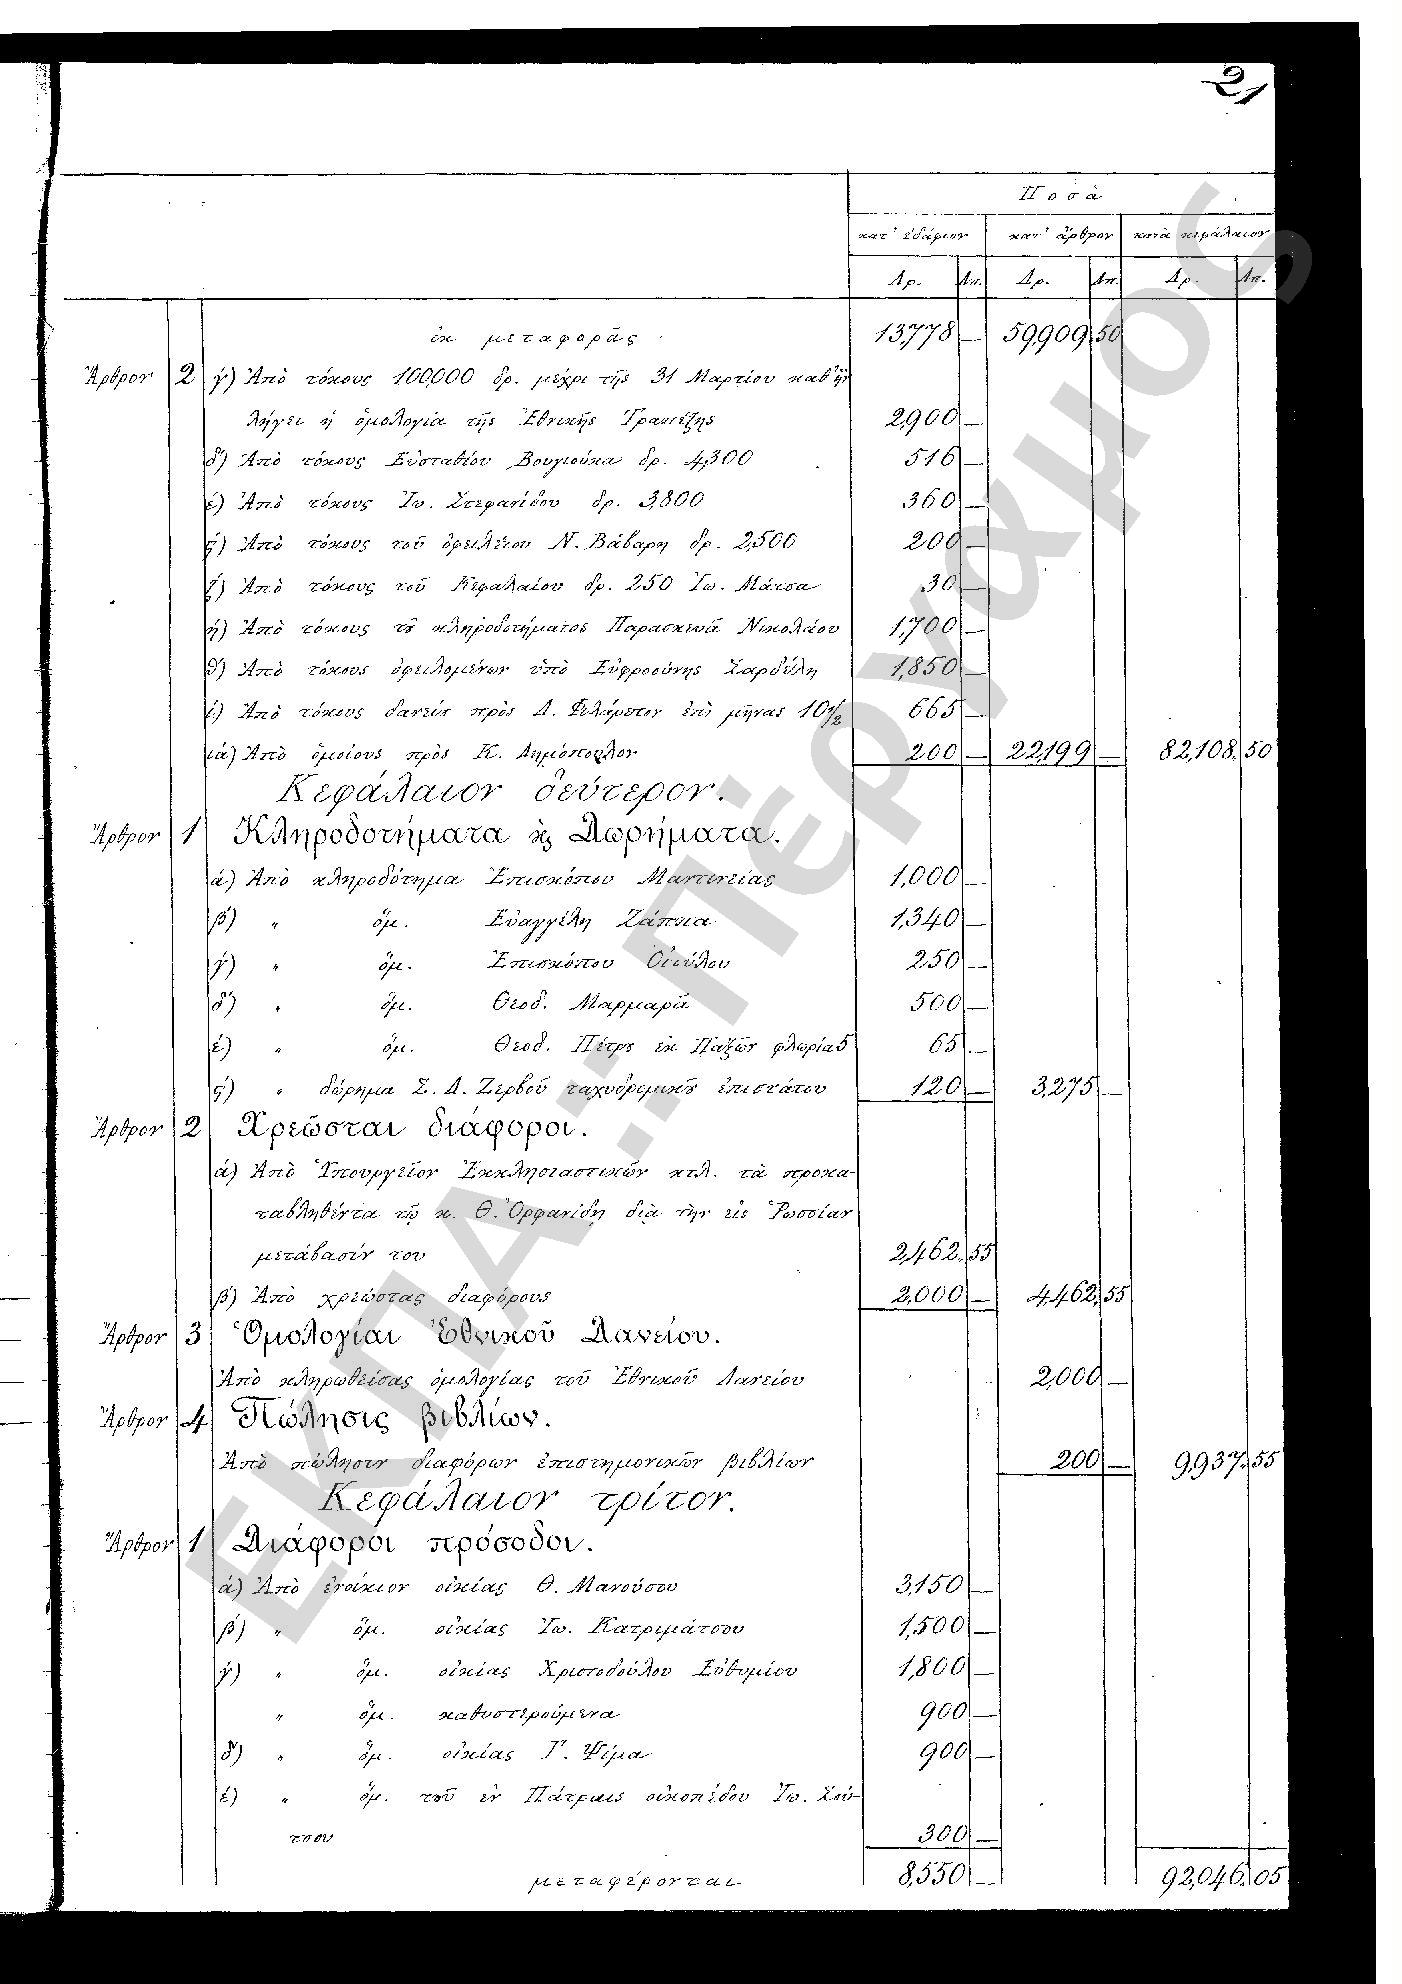 21
Ποσὰ
κατ' ἐδάφιον κατ' ἄρθρον κατὰ κεφάλαιον
Δρ. Λπ. Δρ. Λπ. Δρ. Λπ.
ἐκ μεταφορᾶς 13,778 — 59,909.50
Ἄρθρον 2 γ') Ἀπὸ τόκους 100,000 δρ. μέχρι τῆς 31 Μαρτίου καθ' ἣν
λήγει ἡ ὁμολογία τῆς Ἐθνικῆς Τραπέζης 2,900 —
δ') Ἀπὸ τόκους Εὐσταθίου Βουγιούκα δρ. 4,300 516 —
έ) Ἀπὸ τόκους Ἰω. Στεφανίδου δρ. 3,800 360 —
ς') Ἀπὸ τόκους τοῦ ὀφειλέτου Ν. Βάβαρη δρ. 2,500 200 —
ζ') Ἀπὸ τόκους τοῦ Κεφαλαίου δρ. 250 Ἰω. Μάτσα 30 —
ή) Ἀπὸ τόκους τȣ κληροδοτήματος Παρασκευᾶ Νικολάου 1,700 —
θ') Ἀπὸ τόκους ὀφειλομένων ὑπὸ Εὐφροσύνης Σαρδέλη 1,850 —
ί) Ἀπὸ τόκους δανείȣ πρὸς Δ. Φιλάρετον ἐπὶ μῆνας 10½ 665 —
ιά) Ἀπὸ ὁμοίους πρὸς Κ. Δημόπουλον 200 — 22,199 — 82,108.50
Κεφάλαιον δεύτερον.
Ἄρθρον 1 Κληροδοτήματα ϗ Δωρήματα.
ά) Ἀπὸ κληροδότημα Ἐπισκόπου Μαντινείας 1,000 —
β') " ὅμ. Εὐαγγέλη Ζάππα 1,340 —
γ') " ὅμ. Ἐπισκόπου Οἰτύλου 250 —
δ') " ὅμ. Θεοδ. Μαρμαρᾶ 500 —
έ) " ὅμ. Θεοδ. Πέτρȣ ἐκ Παξῶν φλωρία 5 65 —
ς') " δώρημα Σ. Δ. Ζερβοῦ ταχυδρομικοῦ ἐπιστάτου 120 — 3,275 —
Ἄρθρον 2 Χρεῶσται διάφοροι.
ά) Ἀπὸ Ὑπουργεῖον Ἐκκλησιαστικῶν κτλ. τὰ προκα-
ταβληθέντα τῷ κ. Θ. Ὀρφανίδῃ διὰ τὴν εἰς Ῥωσσίαν
μετάβασίν του 2,462.55
β') Ἀπὸ χρεώστας διαφόρους 2,000 — 4,462.55
Ἄρθρον 3 Ὁμολογίαι Ἐθνικοῦ Δανείου.
Ἀπὸ κληρωθείσας ὁμολογίας τοῦ Ἐθνικοῦ Δανείου 2,000 —
Ἄρθρον 4 Πώλησις βιβλίων.
Ἀπὸ πώλησιν διαφόρων ἐπιστημονικῶν βιβλίων 200 — 9,937.55
Κεφάλαιον τρίτον.
Ἄρθρον 1 Διάφοροι πρόσοδοι.
ά) Ἀπὸ ἐνοίκιον οἰκίας Θ. Μανούσου 3,150 —
β') " ὅμ. οἰκίας Ἰω. Κατριμάτσου 1,500 —
γ') " ὅμ. οἰκίας Χριστοδούλου Εὐθυμίου 1,800 —
" ὅμ. καθυστερούμενα 900 —
δ') " ὅμ. οἰκίας Γ. Ψύμα 900 —
έ) " ὅμ. τοῦ ἐν Πάτραις οἰκοπέδου Ἰω. Σού-
τσου 300 —
μεταφέρονται 8,550 — 92,046.05
ΕΚΠΑ...Πέργαμος